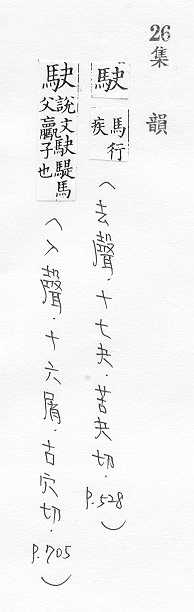 26
集
韻
駃馬行疾(去聲.十七夬.苦夬切.P.528)
駃說文駃騠馬父驘子也(入聲.十六屑.古穴切.P.705)